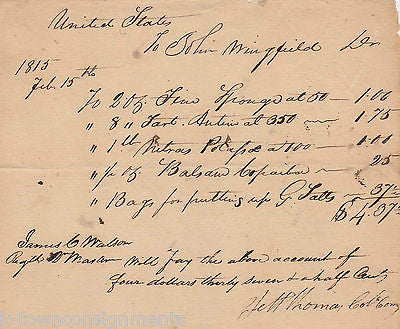 United States
To John Wingfield Dr
1815
Feb. 15th
To 2 oz. Fine Sponge at 50 — 1.00
" 8 " Tart. Antim at 350 — 1.75
" 1 lb Nitras Potass at 100 — 1.00
" Balsam Copaiba — 25
" Bags for putting up G. Salts — 37½
$4.37½
James C Watson
Regt Qr Master Will pay the above account of
four dollars thirty seven and a half Cents
Jett Thomas, Col Com